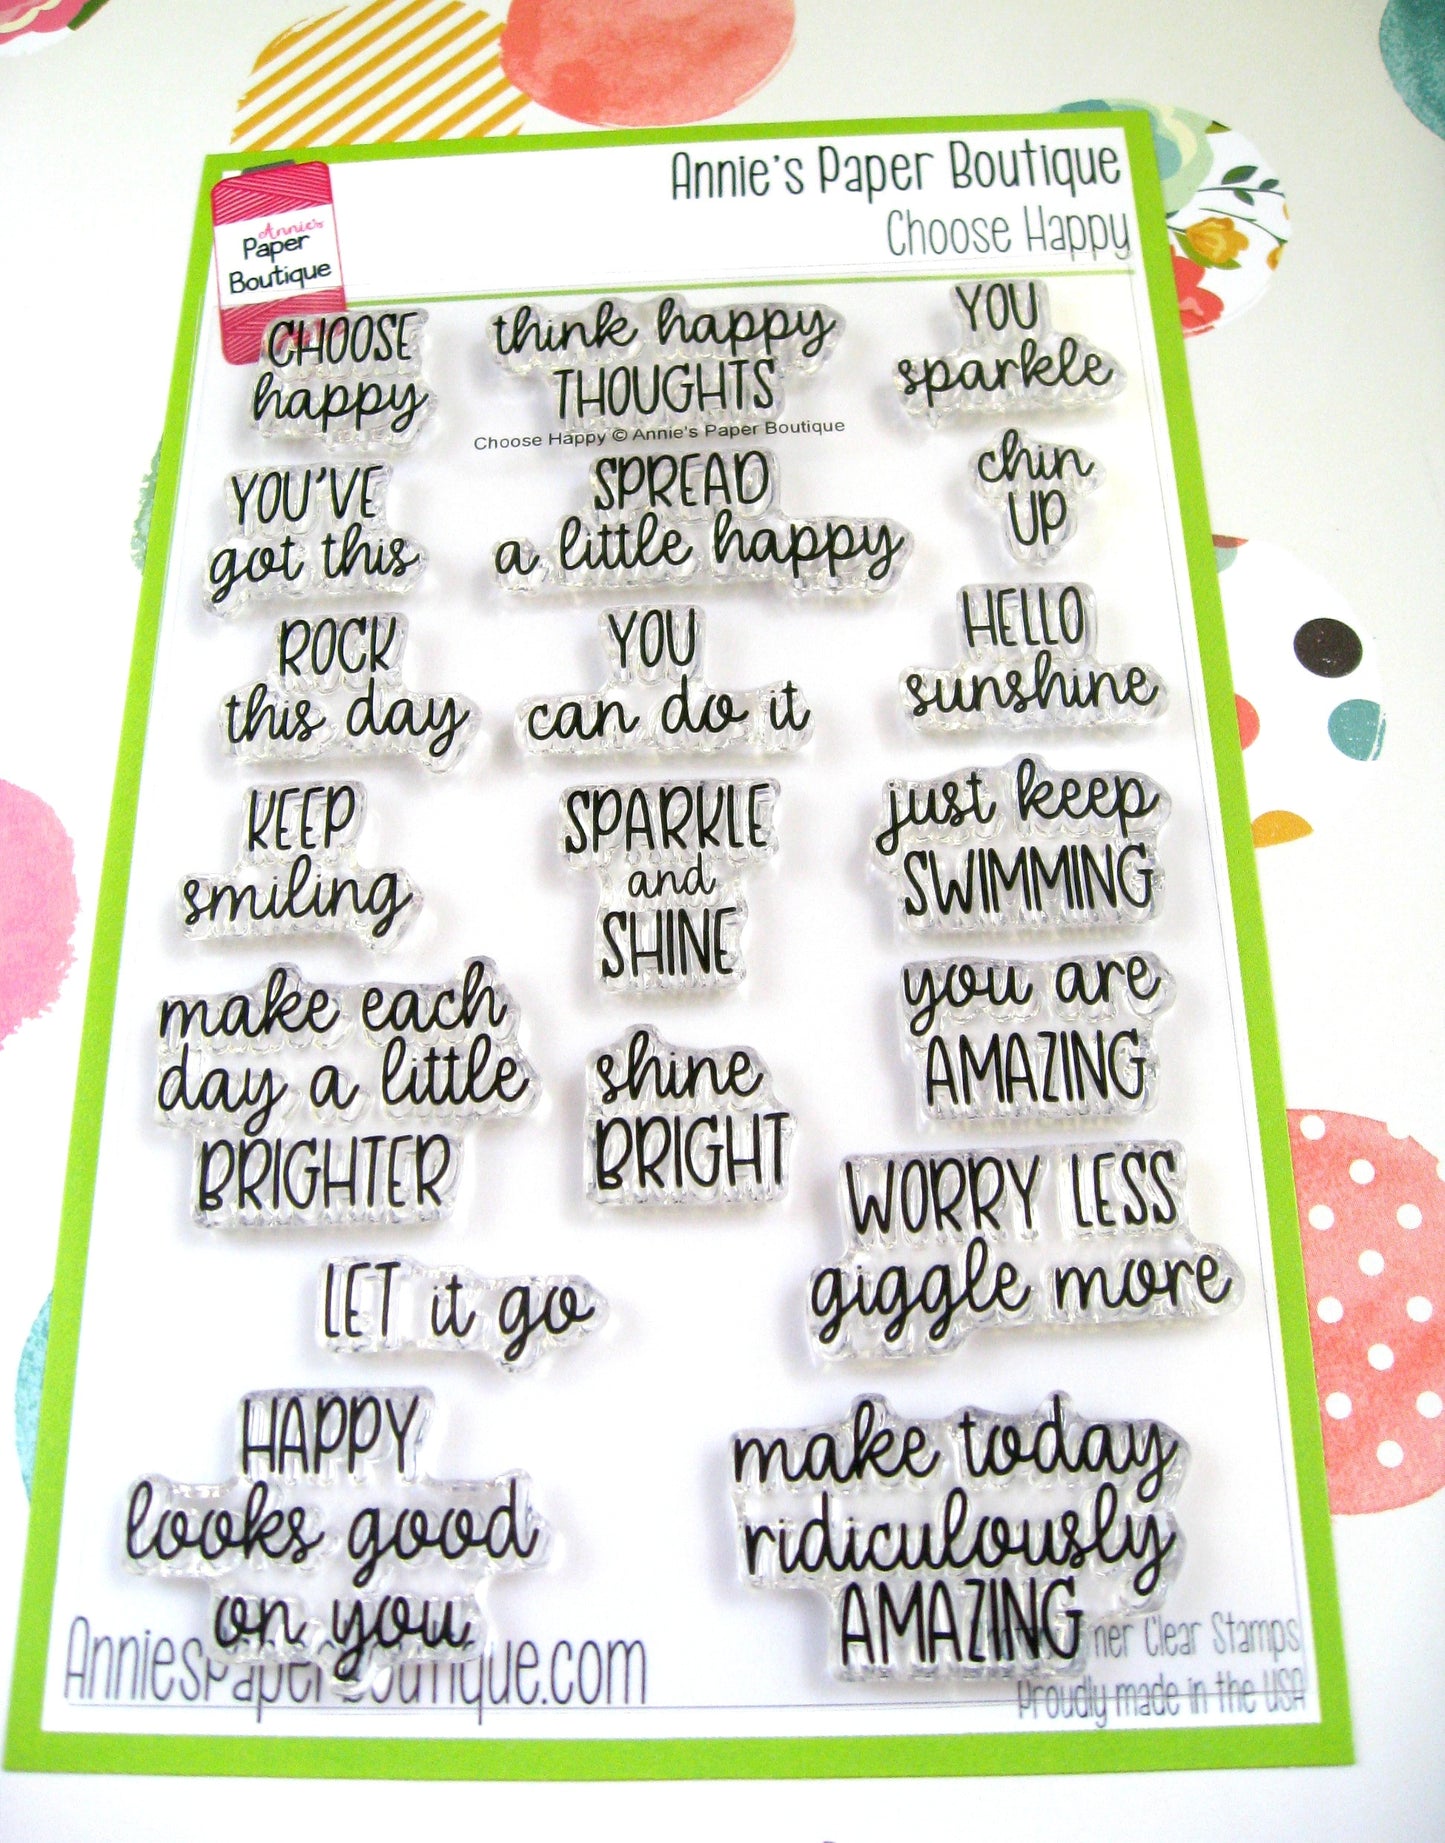 Annie's Paper Boutique
Choose Happy
Annie's
Paper
Boutique
CHOOSE
happy
think happy
THOUGHTS
YOU
sparkle
Choose Happy © Annie's Paper Boutique
YOU'VE
got this
SPREAD
a little happy
chin
UP
ROCK
this day
YOU
can do it
HELLO
sunshine
KEEP
smiling
SPARKLE
and
SHINE
just keep
SWIMMING
make each
day a little
BRIGHTER
shine
BRIGHT
you are
AMAZING
WORRY LESS
giggle more
LET it go
HAPPY
looks good
on you
make today
ridiculously
AMAZING
AnniesPaperBoutique.com
Clear Stamps
Proudly made in the USA